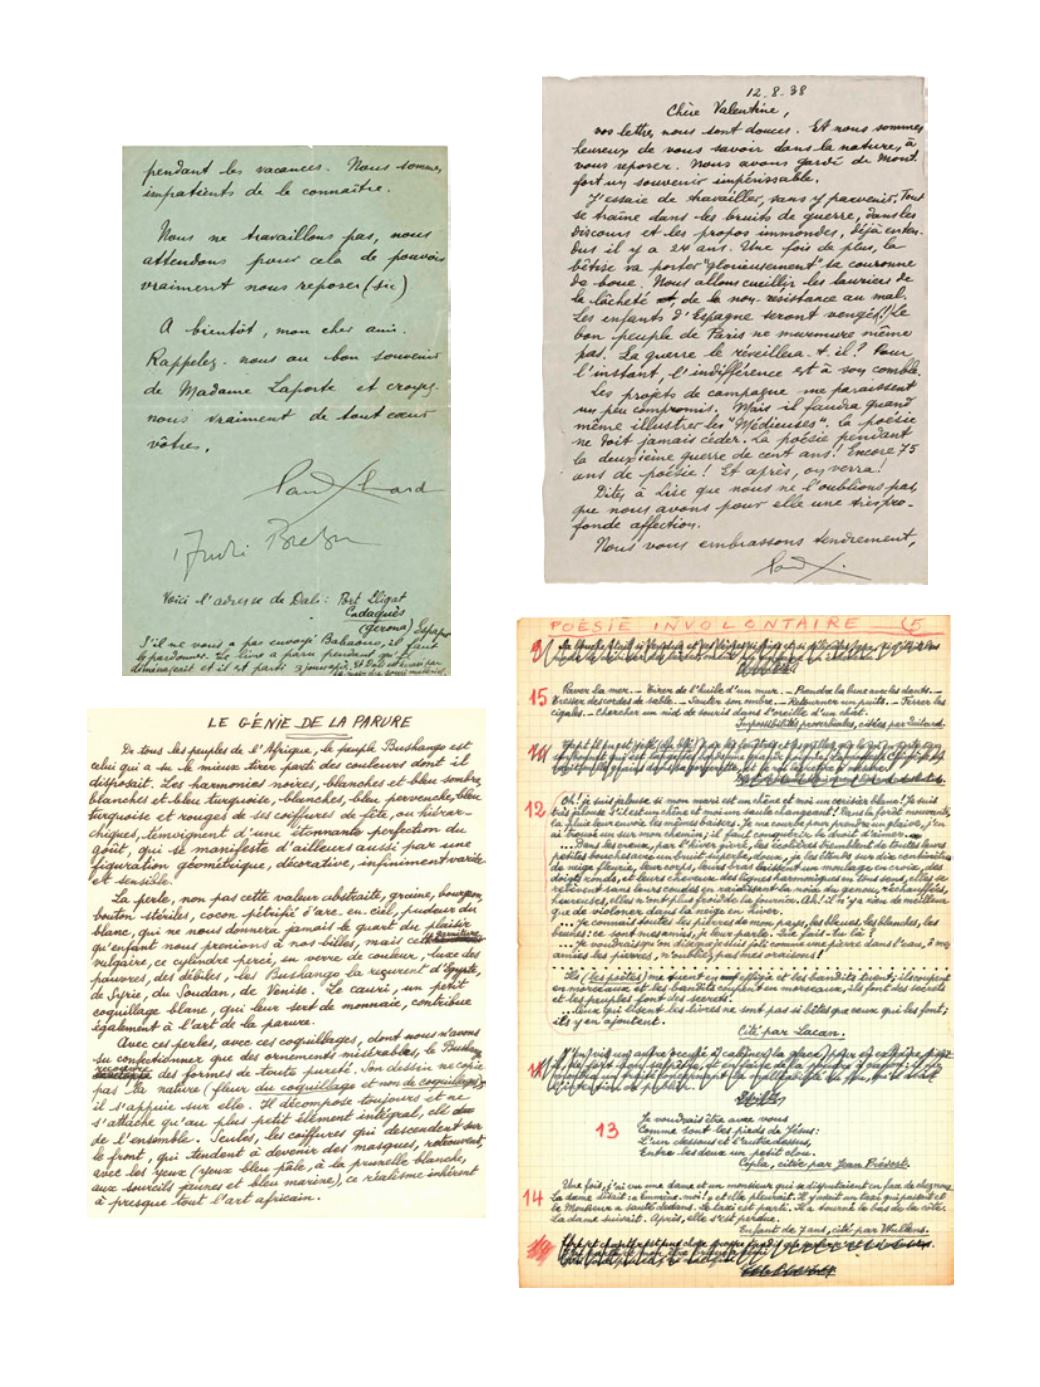 pendant les vacances. Nous sommes
impatients de le connaître.
Nous ne travaillons pas, nous
attendons pour cela de pouvoir
vraiment nous reposer (sic)
A bientôt, mon cher ami.
Rappelez-nous au bon souvenir
de Madame Laporte et croyez-
nous vraiment de tout cœur
vôtres.
Paul Eluard
André Breton
Voici l'adresse de Dali : Port Lligat
Cadaquès
(Gerona) Espagne
S'il ne vous a pas envoyé Babaouo, il faut
le pardonner. Le livre a paru pendant qu'il
déménageait et il est parti
12.8.38
Chère Valentine,
vos lettres nous sont douces. Et nous sommes
heureux de vous savoir dans la nature, à
vous reposer. Nous avons gardé de Mont-
fort un souvenir impérissable.
J'essaie de travailler, sans y parvenir. Tout
se traîne dans les bruits de guerre, dans les
discours et les propos immondes, déjà enten-
dus il y a 24 ans. Une fois de plus, la
bêtise va porter "glorieusement" sa couronne
de boue. Nous allons cueillir les lauriers de
la lâcheté et, de la non-résistance au mal.
Les enfants d'Espagne seront vengés (!) Le
bon peuple de Paris ne murmure même
pas. La guerre le réveillera-t-il ? Pour
l'instant, l'indifférence est à son comble.
Les projets de campagne me paraissent
un peu compromis. Mais il faudra quand
même illustrer les "Médieuses". La poésie
ne doit jamais céder. La poésie pendant
la deuxième guerre de cent ans ! Encore 75
ans de poésie ! Et après, on verra !
Dites à Lise que nous ne l'oublions pas,
que nous avons pour elle une très pro-
fonde affection.
Nous vous embrassons tendrement,
Paul
LE GÉNIE DE LA PARURE
De tous les peuples de l'Afrique, le peuple Bushongo est
celui qui a su le mieux tirer parti des couleurs dont il
disposait. Les harmonies noires, blanches et bleu sombre,
blanches et bleu turquoise, blanches, bleu pervenche, bleu
turquoise et rouges de ses coiffures de fête, ou hiérar-
chiques, témoignent d'une étonnante perfection du
goût, qui se manifeste d'ailleurs aussi par une
figuration géométrique, décorative, infiniment variée
et sensible.
La perle, non pas cette valeur abstraite, graine, bourgeon,
bouton stériles, cocon pétrifié d'arc-en-ciel, pudeur du
blanc, qui ne nous donnera jamais le quart du plaisir
qu'enfant nous prenions à nos billes, mais cette
vulgaire, ce cylindre percé, en verre de couleur, luxe des
pauvres, des débiles, les Bushongo la reçurent d'Egypte,
de Syrie, du Soudan, de Venise. Le cauri, un petit
coquillage blanc, qui leur sert de monnaie, contribue
également à l'art de la parure.
Avec ces perles, avec ces coquillages, dont nous n'avons
su confectionner que des ornements misérables, le Bushongo
recouvre des formes de toute pureté. Son dessin ne copie
pas la nature (fleur du coquillage et non de coquillages),
il s'appuie sur elle. Il décompose toujours et ne
s'attache qu'au plus petit élément intégral, clé
de l'ensemble. Seules, les coiffures qui descendent sur
le front, qui tendent à devenir des masques, retrouvent,
avec les yeux (yeux bleu pâle, à la prunelle blanche,
aux sourcils jaunes et bleu marine), ce réalisme inhérent
à presque tout l'art africain.
POÉSIE INVOLONTAIRE (5
15 Paver la mer. — Tirer de l'huile d'un mur. — Prendre la lune avec les dents. —
Tresser des cordes de sable. — Sauter son ombre. — Retourner un puits. — Ferrer les
cigales. — Chercher un nid de souris dans l'oreille d'un chat.
Impossibilités proverbiales, citées par
12 Oh ! je suis jalouse si mon mari est un chêne et moi un cerisier blanc ! Je suis
très jalouse s'il est un chêne et moi un saule changeant ! Dans la forêt mouvante,
la pluie leur envoie les mêmes baisers. Je me courbe pour prendre un glaive, j'en
ai trouvé un sur mon chemin ; il faut conquérir le droit d'aimer.
... Dans les creux, par l'hiver givré, les écolières tremblent de toutes leurs
petites bouches avec un bruit superbe, doux, je les étends sur dix centimètres
de neige fleurie, leur corps, leurs bras laissent un moulage en croix, des
doigts ronds, et leurs cheveux des lignes harmoniques en tous sens, elles se
relèvent sans leurs coudes en raidissant la noix du genou, réchauffées,
heureuses, elles n'ont plus froid de la fournée. Ah ! il n'y a rien de meilleur
que de violoner dans la neige en hiver.
... Je connais toutes les pierres de mon pays, les bleues, les blondes, les
beiges : ce sont mes amies, je leur parle. Que fais-tu là ?
... Je voudrais qu'on dise que je suis joli comme une pierre dans l'eau, ô mes
amies les pierres, n'oubliez pas mes oraisons !
Ils (les poètes) me tuent en effigie et les bandits tuent ; ils coupent
en morceaux et les bandits coupent en morceaux, ils font des secrets
et les peuples font des secrets.
... Ceux qui lisent les livres ne sont pas si bêtes que ceux qui les font ;
ils y en ajoutent.
Cité par Lacan.
13 Je voudrais être avec vous
Comme sont les pieds de Jésus :
L'un dessous et l'autre dessus,
Entre les deux un petit clou.
Copla, citée par Jean Prévost.
14 Une fois, j'ai vu une dame et un monsieur qui se disputaient en face de chez nous.
La dame disait : « Emmène-moi ! » et elle pleurait. Il y avait un taxi qui passait et
le Monsieur a sauté dedans. Le taxi est parti. Il a tourné le bas de la côte.
La dame suivait. Après, elle s'est perdue.
Enfant de 7 ans, cité par Wullens.